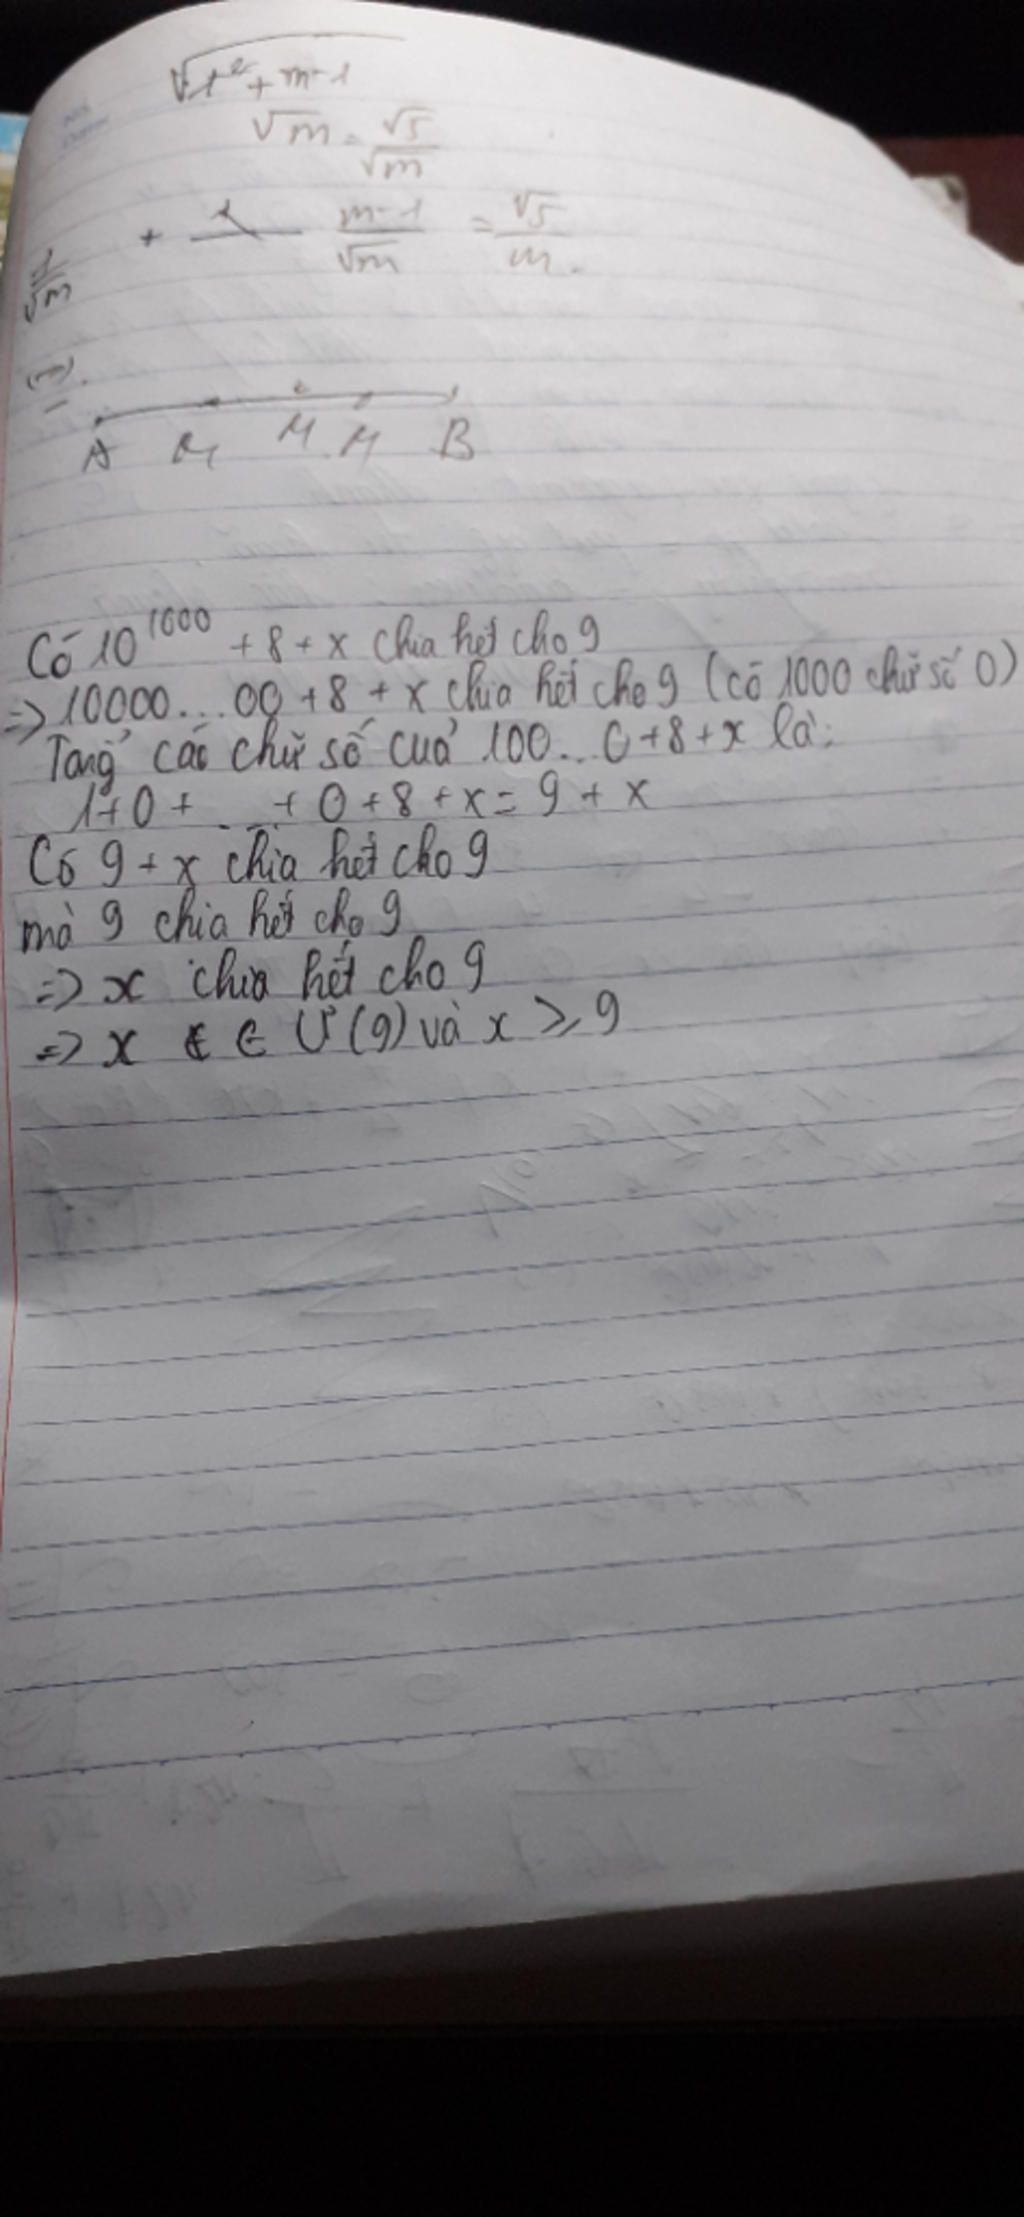 √1² + m-1
√m = √5/√m
1/√m + 1 m-1/√m = √5/m.
A M M B
Có 10¹⁰⁰⁰ + 8 + x chia hết cho 9
=> 10000...00 + 8 + x chia hết cho 9 (có 1000 chữ số 0)
Tổng các chữ số của 100...0+8+x là:
1+0+ ... +0+8+x = 9+x
Có 9+x chia hết cho 9
mà 9 chia hết cho 9
=> x chia hết cho 9
=> x ∈ Ư(9) và x ⩾ 9